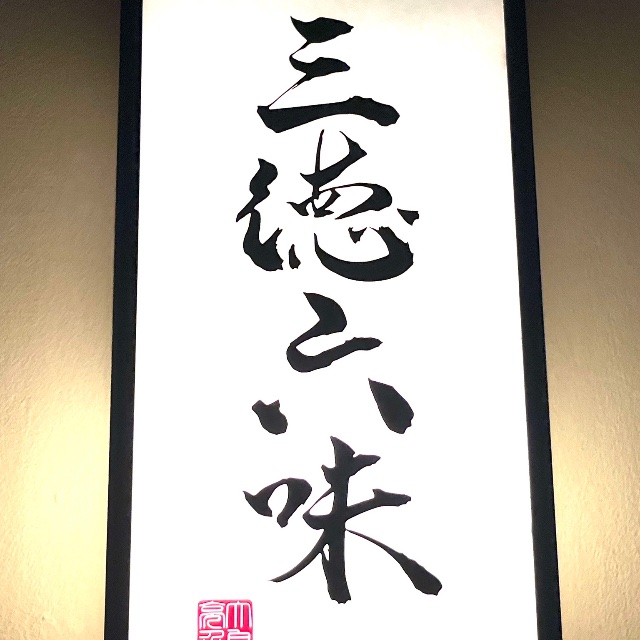 三徳六味